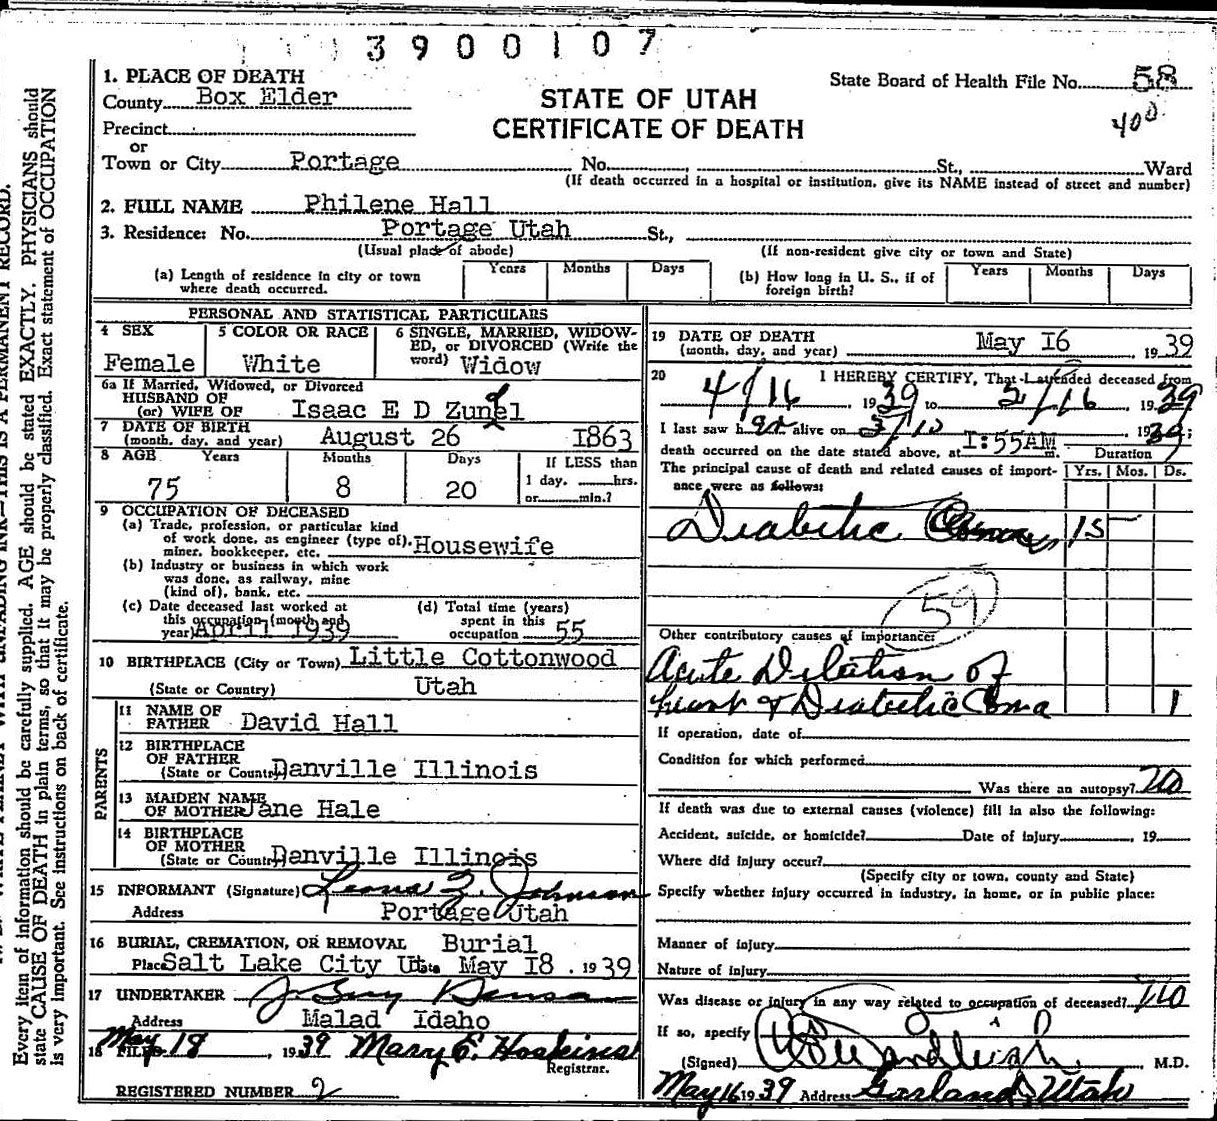 3900107
1. PLACE OF DEATH
State Board of Health File No. 58
County Box Elder
STATE OF UTAH
400
Precinct
CERTIFICATE OF DEATH
or
Town or City Portage No. St., Ward
(If death occurred in a hospital or institution, give its NAME instead of street and number)
2. FULL NAME Philene Hall
3. Residence: No. Portage Utah St.,
(Usual place of abode) (If non-resident give city or town and State)
(a) Length of residence in city or town where death occurred. Years Months Days
(b) How long in U. S., if of foreign birth? Years Months Days
PERSONAL AND STATISTICAL PARTICULARS
4 SEX 5 COLOR OR RACE 6 SINGLE, MARRIED, WIDOW-
ED, or DIVORCED (Write the
Female White word) Widow
6a If Married, Widowed, or Divorced
HUSBAND OF
(or) WIFE OF Isaac E D Zundel
7 DATE OF BIRTH
(month, day, and year) August 26 1863
8 AGE Years Months Days If LESS than
75 8 20 1 day. hrs.
or min.?
9 OCCUPATION OF DECEASED
(a) Trade, profession, or particular kind
of work done, as engineer (type of),
miner, bookkeeper, etc. Housewife
(b) Industry or business in which work
was done, as railway, mine
(kind of), bank, etc.
(c) Date deceased last worked at
this occupation (month and
year) April 1939
(d) Total time (years)
spent in this
occupation 55
10 BIRTHPLACE (City or Town) Little Cottonwood
(State or Country) Utah
PARENTS
11 NAME OF
FATHER David Hall
12 BIRTHPLACE
OF FATHER
(State or Country) Danville Illinois
13 MAIDEN NAME
OF MOTHER Jane Hale
14 BIRTHPLACE
OF MOTHER
(State or Country) Danville Illinois
15 INFORMANT (Signature) Leona Z. Johnson
Address Portage Utah
16 BURIAL, CREMATION, OR REMOVAL Burial
Place Salt Lake City Ut. Date May 18, 1939
17 UNDERTAKER
Address Malad Idaho
18 FILED May 18, 1939 Mary E. Hoskins
Registrar.
REGISTERED NUMBER 2
19 DATE OF DEATH
(month, day, and year) May 16, 1939
20 I HEREBY CERTIFY, That I attended deceased from
4/16 1939 to 5/16 1939
I last saw her alive on 5/15 1939;
death occurred on the date stated above, at 1:55AM m. Duration
The principal cause of death and related causes of import-
ance were as follows: Yrs. Mos. Ds.
Diabetic Coma 15
59
Other contributory causes of importance:
Acute Dilation of
heart & Diabetic Coma 1
If operation, date of
Condition for which performed
Was there an autopsy? no
If death was due to external causes (violence) fill in also the following:
Accident, suicide, or homicide? Date of injury 19
Where did injury occur?
(Specify city or town, county and State)
Specify whether injury occurred in industry, in home, or in public place:
Manner of injury
Nature of injury
Was disease or injury in any way related to occupation of deceased? no
If so, specify
(Signed) M.D.
May 16 1939 Address Garland, Utah
Every item of information should be carefully supplied. AGE should be stated EXACTLY. PHYSICIANS should
state CAUSE OF DEATH in plain terms, so that it may be properly classified. Exact statement of OCCUPATION
is very important. See instructions on back of certificate.